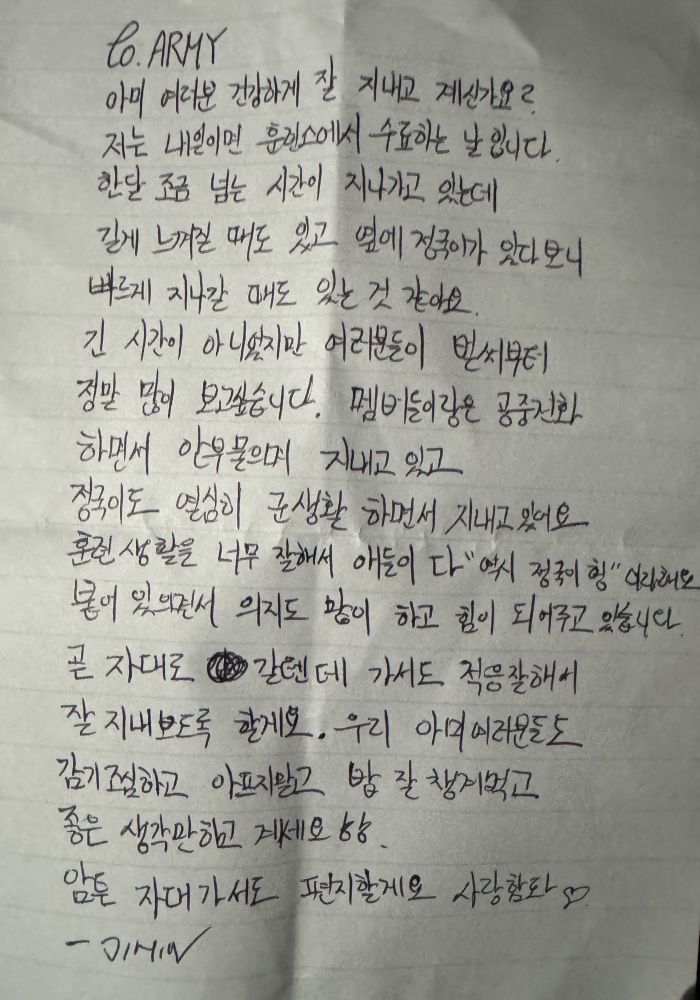 to. ARMY
아미 여러분 건강하게 잘 지내고 계신가요?
저는 내일이면 훈련소에서 수료하는 날입니다.
한달 조금 넘는 시간이 지나가고 있는데
길게 느껴질 때도 있고 옆에 정국이가 있다보니
빠르게 지나갈 때도 있는 것 같아요.
긴 시간이 아니었지만 여러분들이 벌써부터
정말 많이 보고싶습니다. 멤버들이랑은 공중전화
하면서 안부물으며 지내고 있고
정국이도 열심히 군생활 하면서 지내고있어요
훈련생활을 너무 잘해서 애들이 다 "역시 정국이 형" 이라해요
붙어 있으면서 의지도 많이 하고 힘이 되어주고 있습니다.
곧 자대로 갈텐데 가서도 적응잘해서
잘 지내보도록 할게요. 우리 아미여러분들도
감기조심하고 아프지말고 밥 잘 챙겨먹고
좋은 생각만하고 계세요 ㅎㅎ.
암튼 자대가서도 편지할게요 사랑함돠 ♡.
- JIMIN